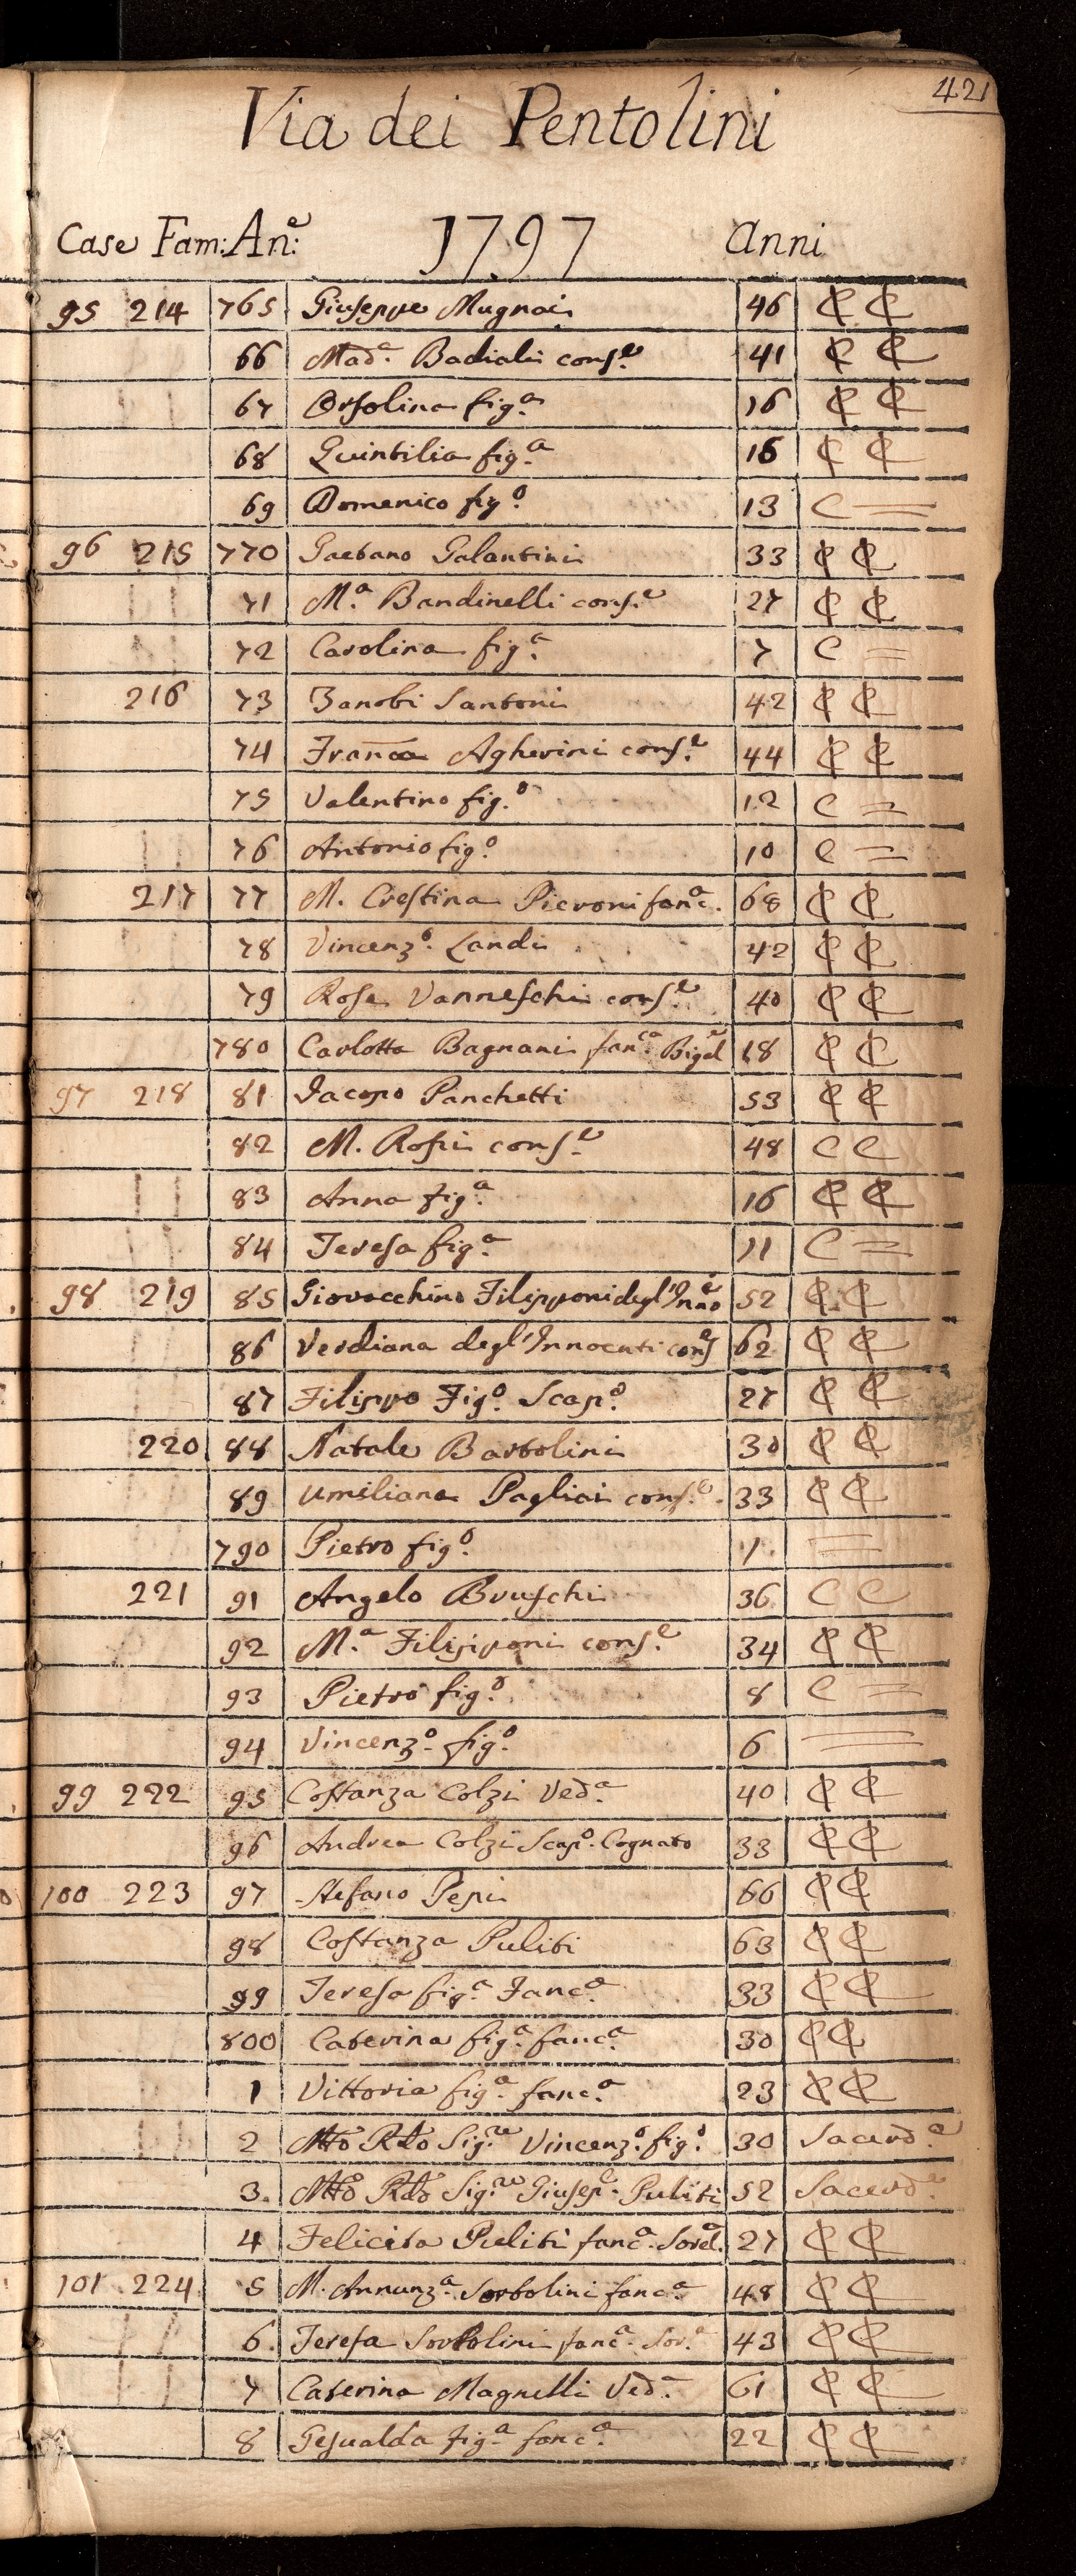 421
Via dei Pentolini
Case Fam: An:e 1797 Anni
95 214 765 Giuseppe Mugnai 46 C C
66 Mad.a Badiali cons.e 41 C C
67 Orsolina fig.a 16 C C
68 Quintilia fig.a 15 C C
69 Domenico fig.o 13 C =
96 215 770 Gaetano Galantini 33 C C
71 M.a Bandinelli cons.e 27 C C
72 Carolina fig.a 7 C =
216 73 Zanobi Santoni 42 C C
74 Franca Agherini cons.e 44 C C
75 Valentino fig.o 12 C =
76 Antonio fig.o 10 C =
217 77 M. Crestina Pieroni fanc.a 68 C C
78 Vincenz.o Landi 42 C C
79 Rosa Vanneschi cons.e 40 C C
780 Carlotta Bagnani fanc.a Bigel 18 C C
97 218 81 Jacopo Panchetti 53 C C
82 M. Rossi cons.e 48 C C
83 Anna fig.a 16 C C
84 Teresa fig.a 11 C =
98 219 85 Giovacchino Filipponi degl'Inno 52 C C
86 Verdiana degl'Innocenti cons 62 C C
87 Filippo Fig.o Scap.o 27 C C
220 88 Natale Bartolini 30 C C
89 Umiliana Pagliai cons.e 33 C C
790 Pietro fig.o 1 =
221 91 Angelo Bruschi 36 C C
92 M.a Filipponi cons.e 34 C C
93 Pietro fig.o 8 C =
94 Vincenz.o fig.o 6 =
99 222 95 Costanza Colzi Ved.a 40 C C
96 Andrea Colzi Scap.o Cognato 33 C C
100 223 97 Stefano Pepi 66 C C
98 Costanza Puliti 63 C C
99 Teresa fig.a Fanc.a 33 C C
800 Caterina fig.a fanc.a 30 C C
1 Vittoria fig.a fanc.a 23 C C
2 Mto Rdo Sig.re Vincenz.o fig.o 30 Sacerd.e
3. Mto Rdo Sig.re Giusep.e Puliti 52 Sacerd.e
4 Felicita Puliti fanc.a Sorel.a 27 C C
101 224 5 M. Annunz.a Sorbolini fanc.a 48 C C
6. Teresa Sorbolini fanc.a Sor.a 43 C C
7 Caterina Magnelli Ved.a 61 C C
8 Gesualda fig.a fanc.a 22 C C